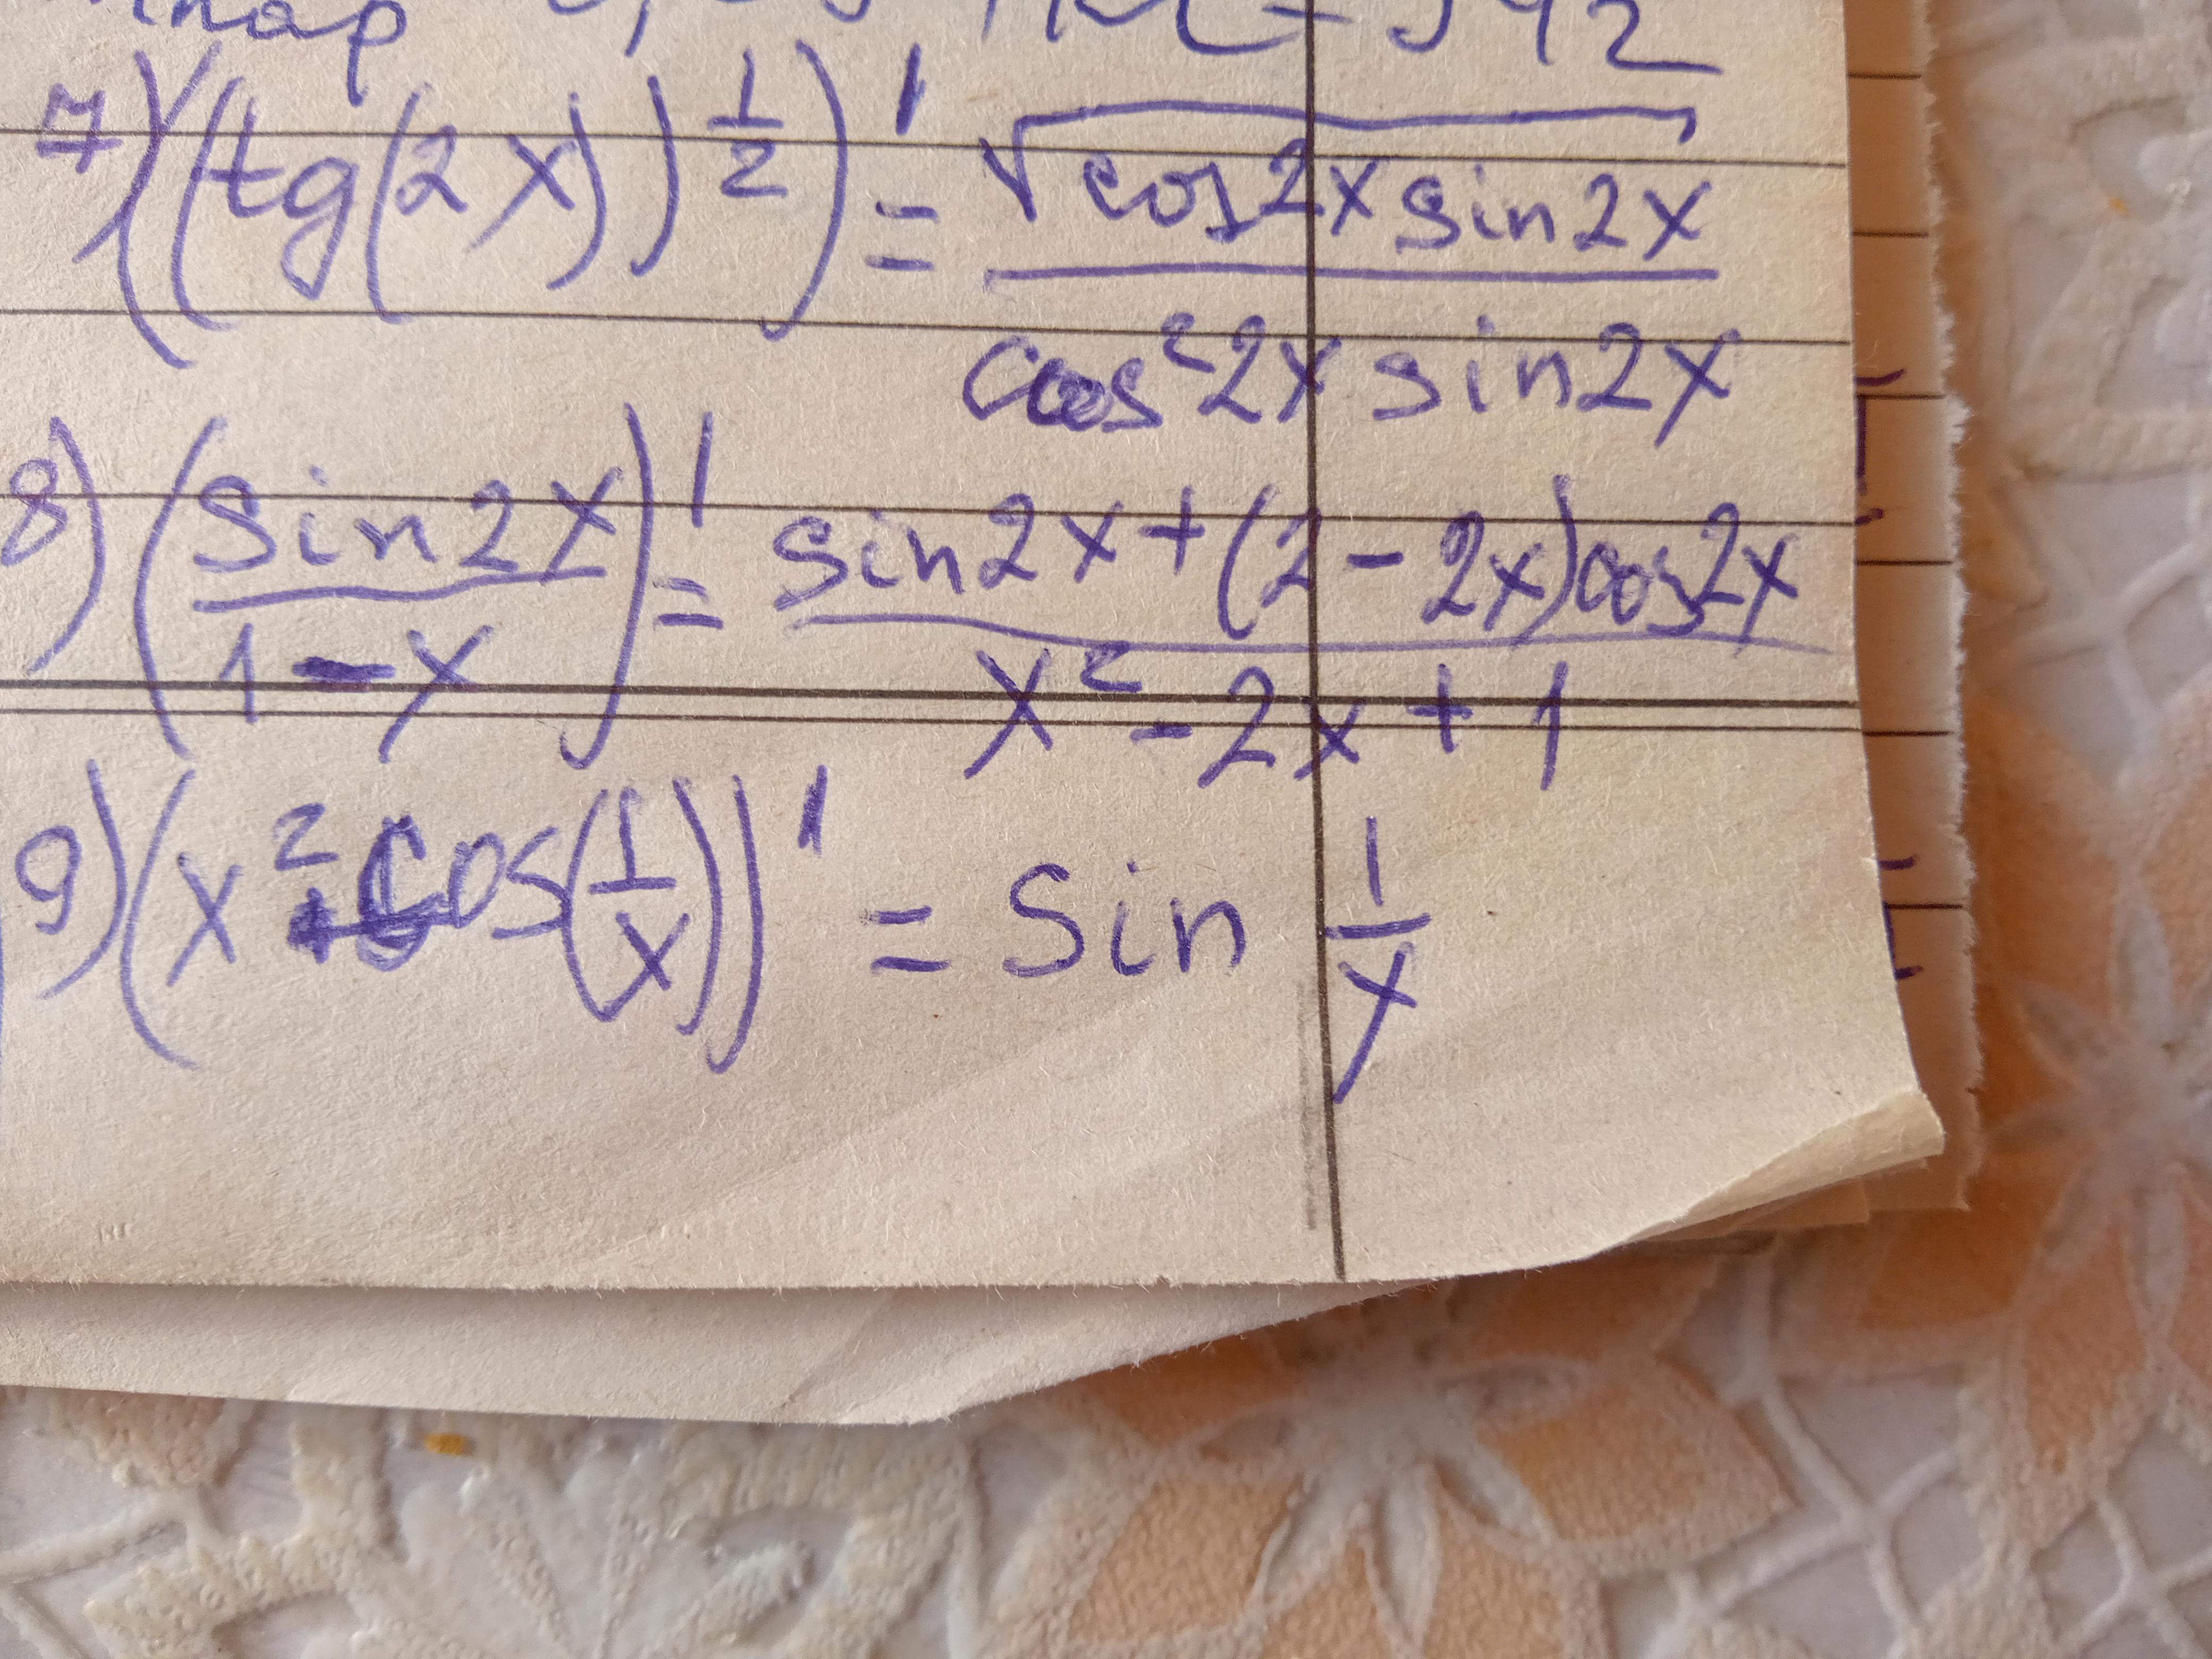 = 542
7) ((tg(2x))^(1/2))' = √(cos2x sin2x) / (cos²2x sin2x)
8) (sin2x / (1-x))' = (sin2x+(2-2x)cos2x) / (x²-2x+1)
9) (x² cos(1/x))' = sin 1/x